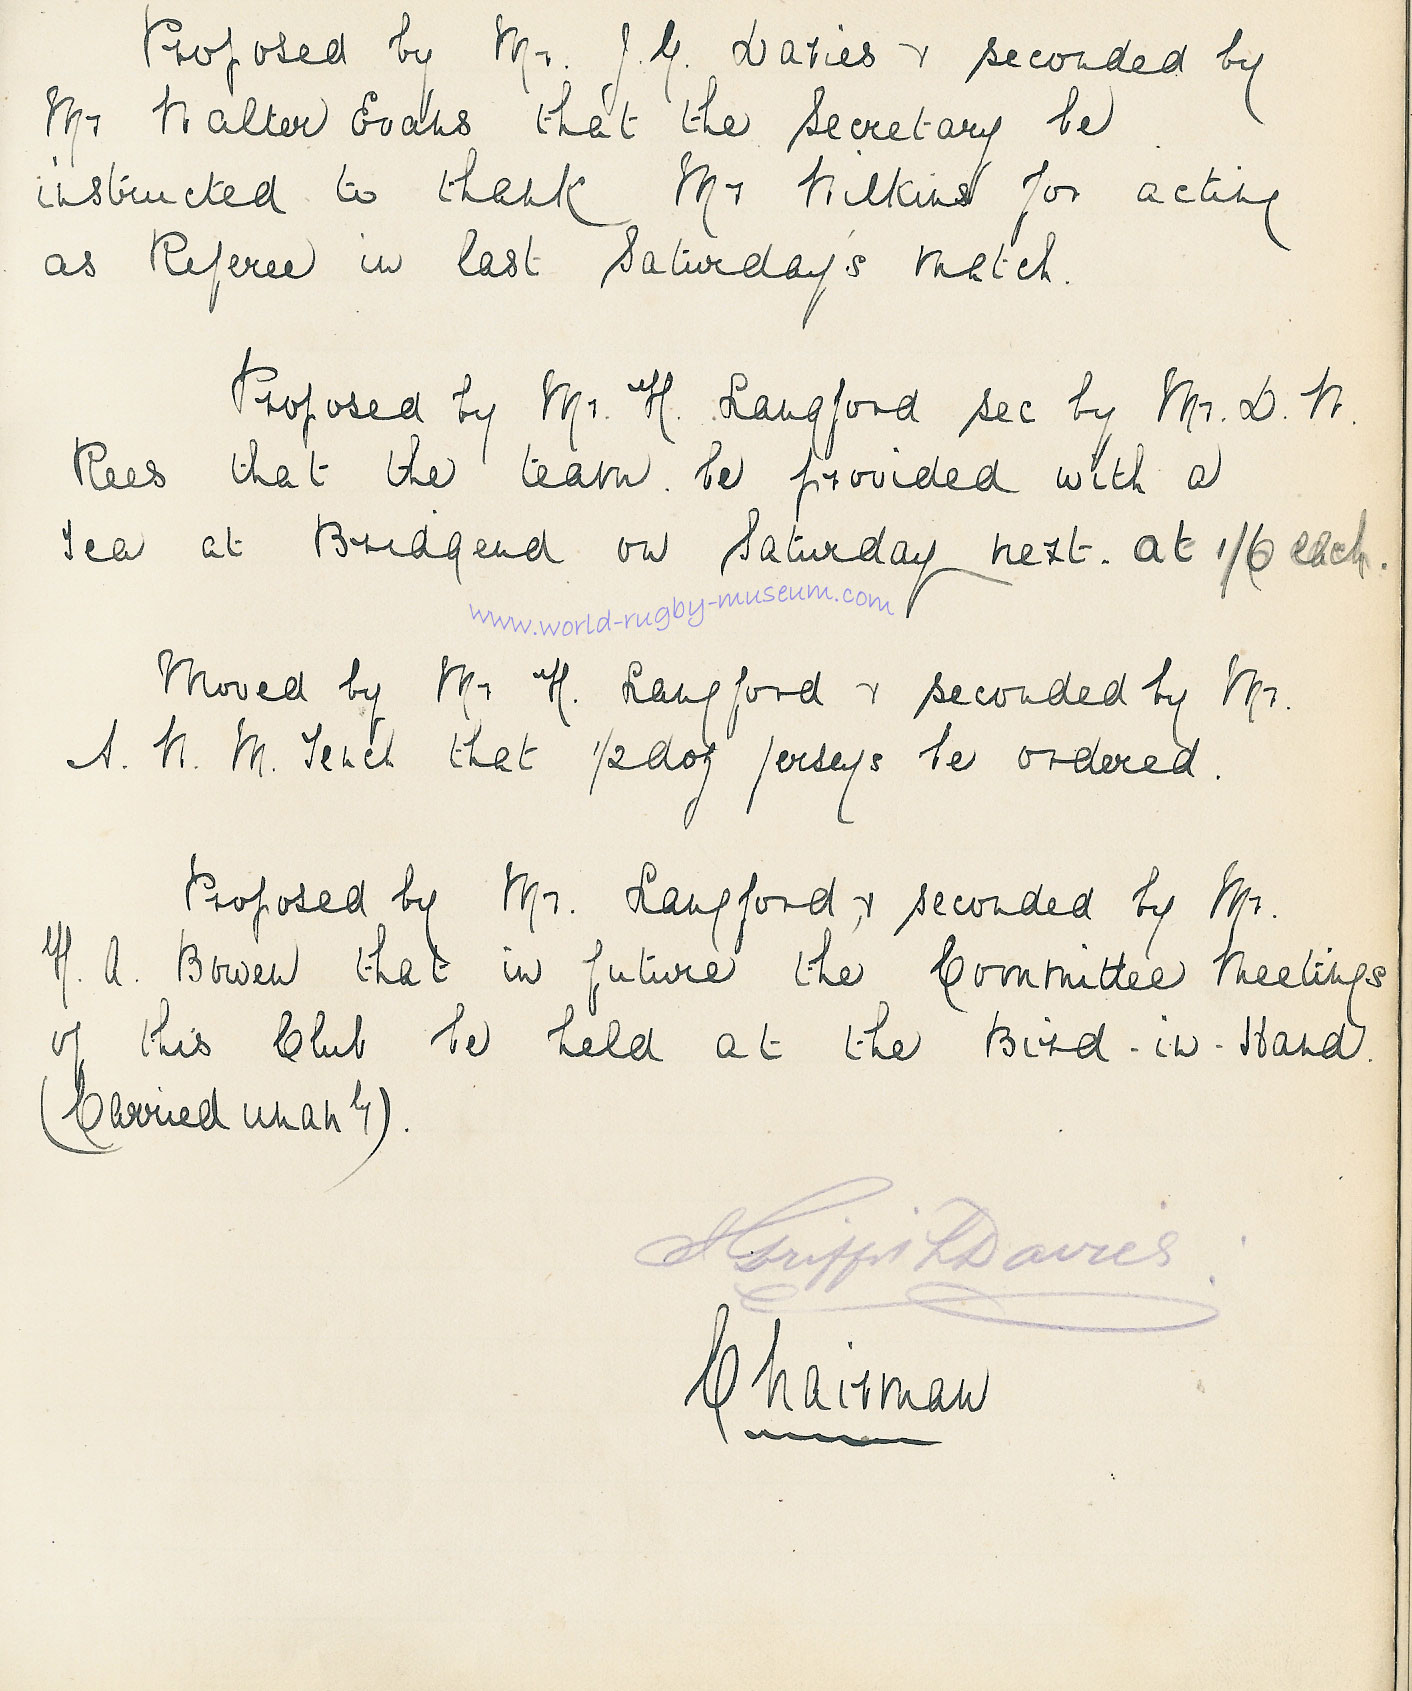 Proposed by Mr. J. G. Davies & seconded by
Mr Walter Evans that the Secretary be
instructed to thank Mr Wilkins for acting
as Referee in last Saturday's match.
Proposed by Mr. H. Langford sec by Mr. D. W.
Rees that the team be provided with a
Tea at Bridgend on Saturday next. at 1/6 each.
www.world-rugby-museum.com
Moved by Mr H. Langford & seconded by Mr.
A. W. M. Tench that 1/2 doz jerseys be ordered.
Proposed by Mr. Langford, & seconded by Mr.
H. A. Bowen that in future the Committee Meetings
of this Club be held at the Bird-in-Hand.
(Carried unanly).
J Griffith Davies
Chairman